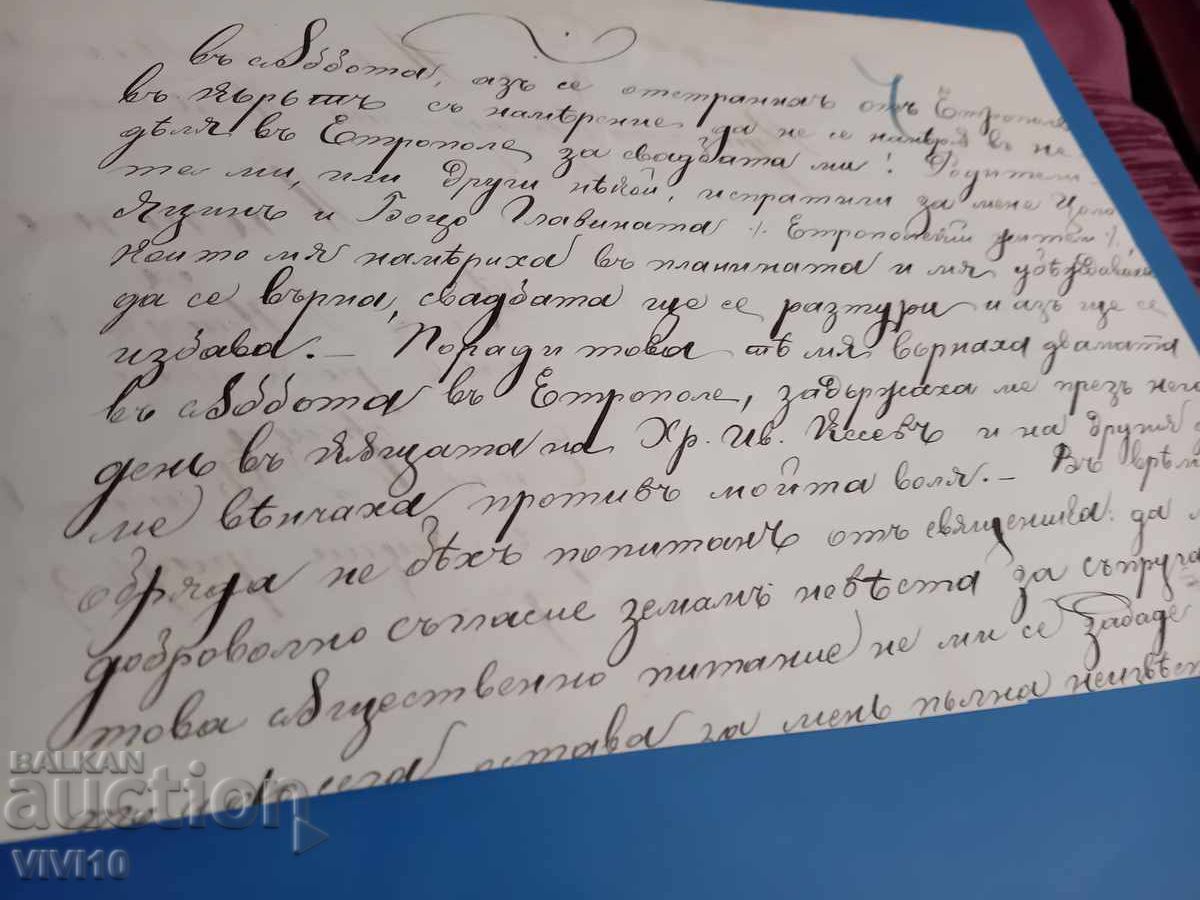 въ сѫббота, азъ се отстранихъ отъ Етрополе
въ кърътъ съ намѣрение да не се намѣря въ не-
дѣля въ Етрополе за свадбата ми! Родители-
те ми, или други нѣкой, испратили за мене Цоло
и Боцо Главината /. Етрополски жители /.,
които мя намѣриха въ планината и мя убѣждаваха
да се върна, свадбата ще се разтури и азъ ще се
избава. — Поради това тѣ мя върнаха двамата
въ сѫббота въ Етрополе, задържаха ме презъ
день въ кѫщата на Хр. Ив. и на другия
ме вѣнчаха противъ мойта воля. — Въ врѣм
обряда не бѣхъ попитанъ отъ священика: да
доброволно съгласие земамъ невѣста за съпруга
това сѫществено питание не ми се зададе
сега остава за менъ пълна неизвѣст
BALKAN
auction
VIVI10